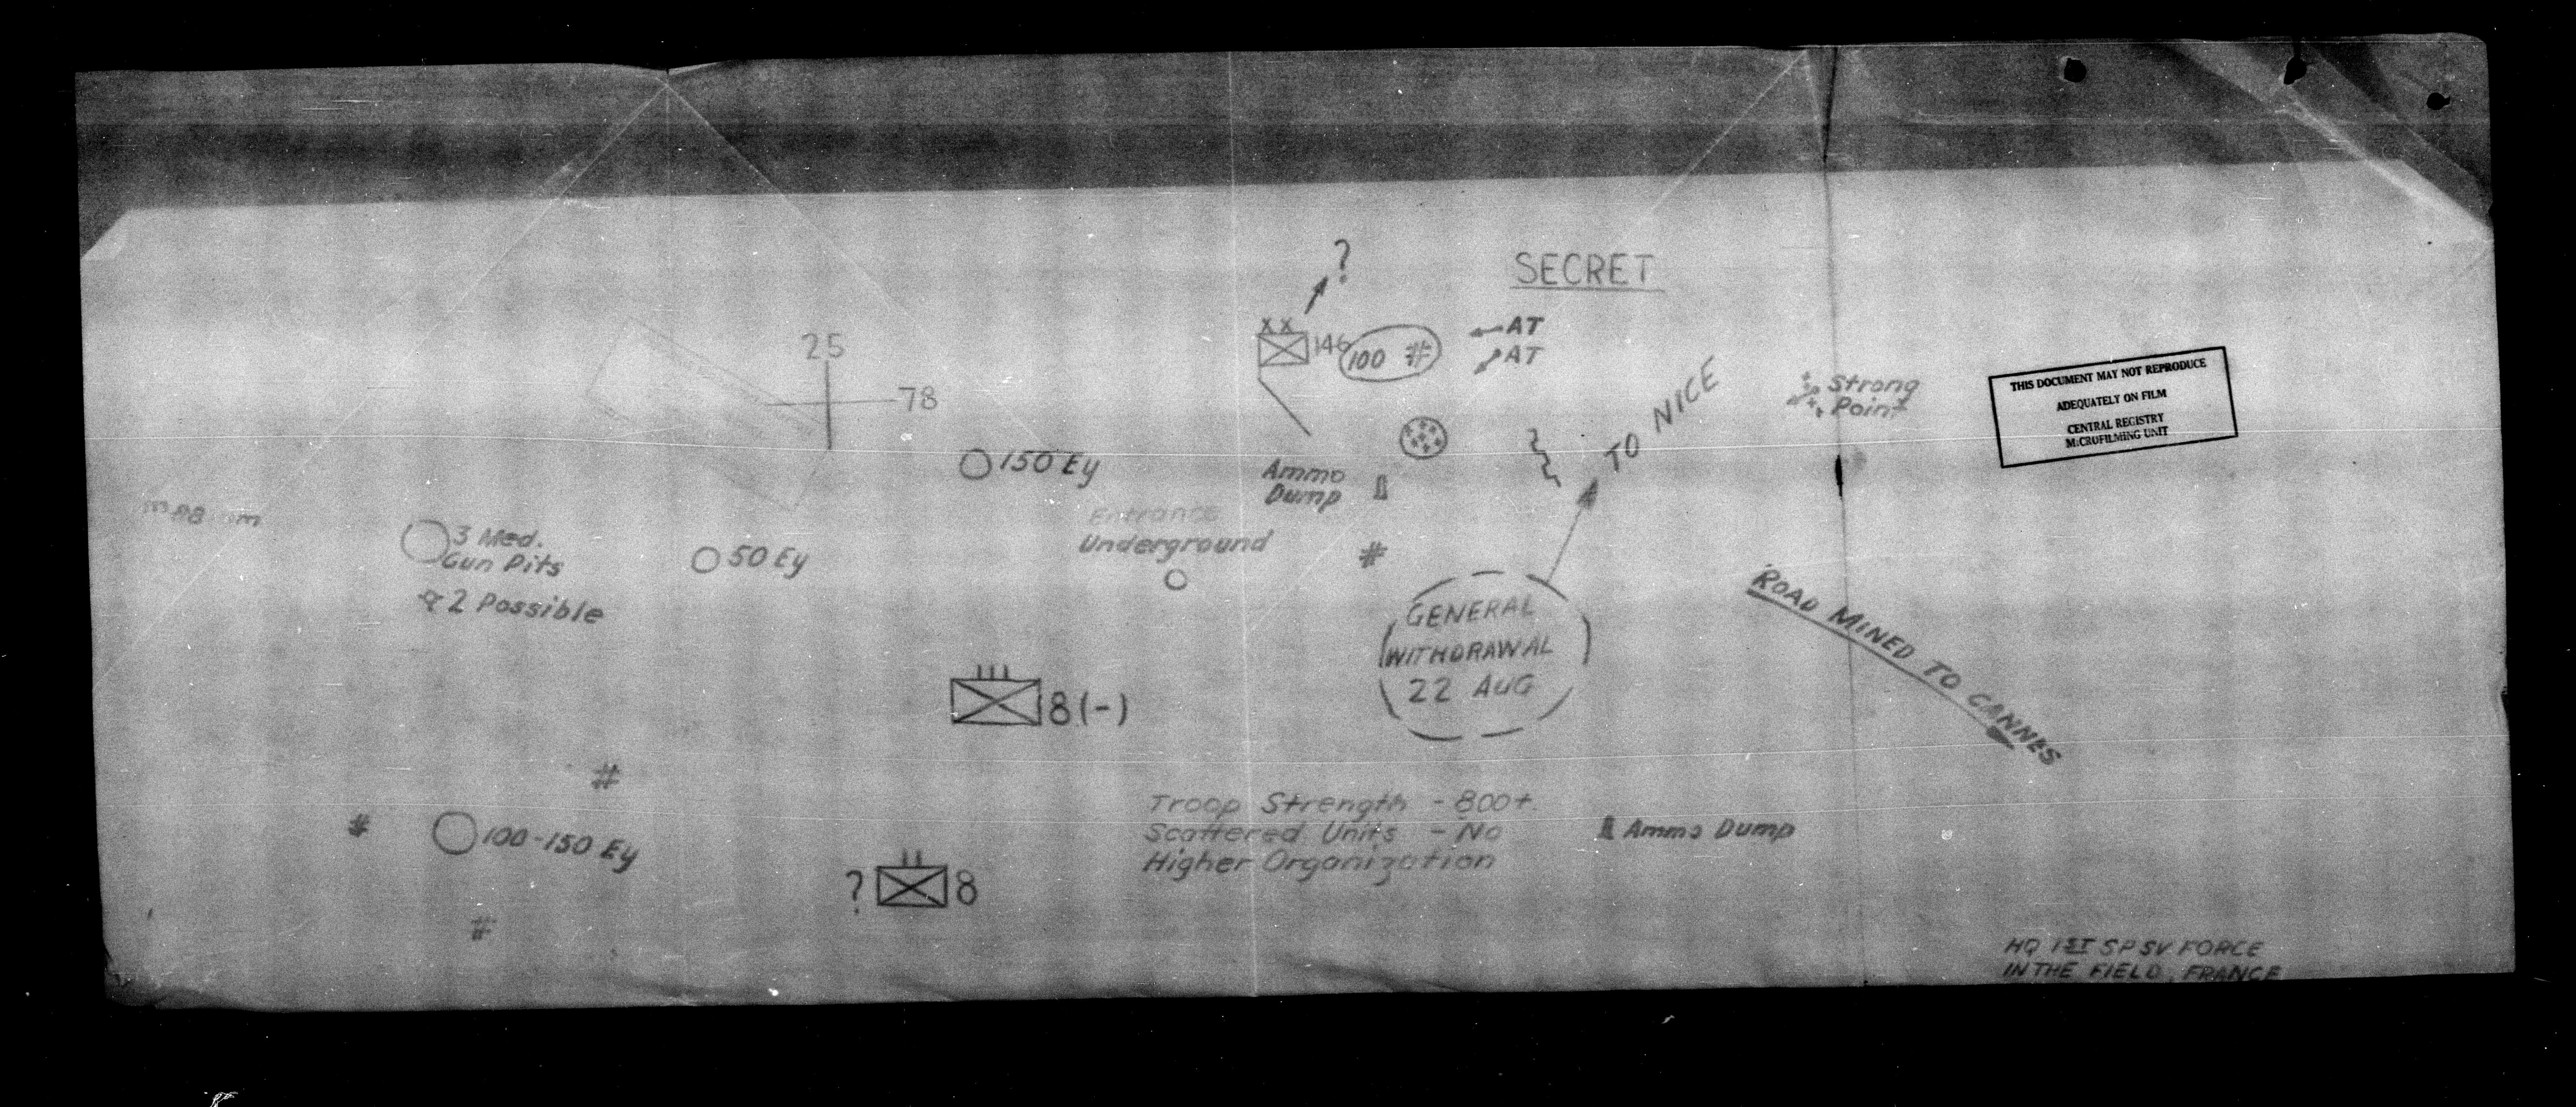 SECRET
?
XX
146
100 #
AT
AT
25
78
TO NICE
Strong
Point
THIS DOCUMENT MAY NOT REPRODUCE
ADEQUATELY ON FILM
CENTRAL REGISTRY
MICROFILMING UNIT
150 Ey
Ammo
Dump
Entrance
Underground
#
3 Med.
Gun Pits
2 Possible
50 Ey
GENERAL
WITHDRAWAL
22 AUG
ROAD MINED TO CANNES
8(-)
#
#
100-150 Ey
#
Troop Strength - 800+
Scattered Units - No
Higher Organization
Ammo Dump
? 8
HQ 1ST SP SV FORCE
IN THE FIELD, FRANCE